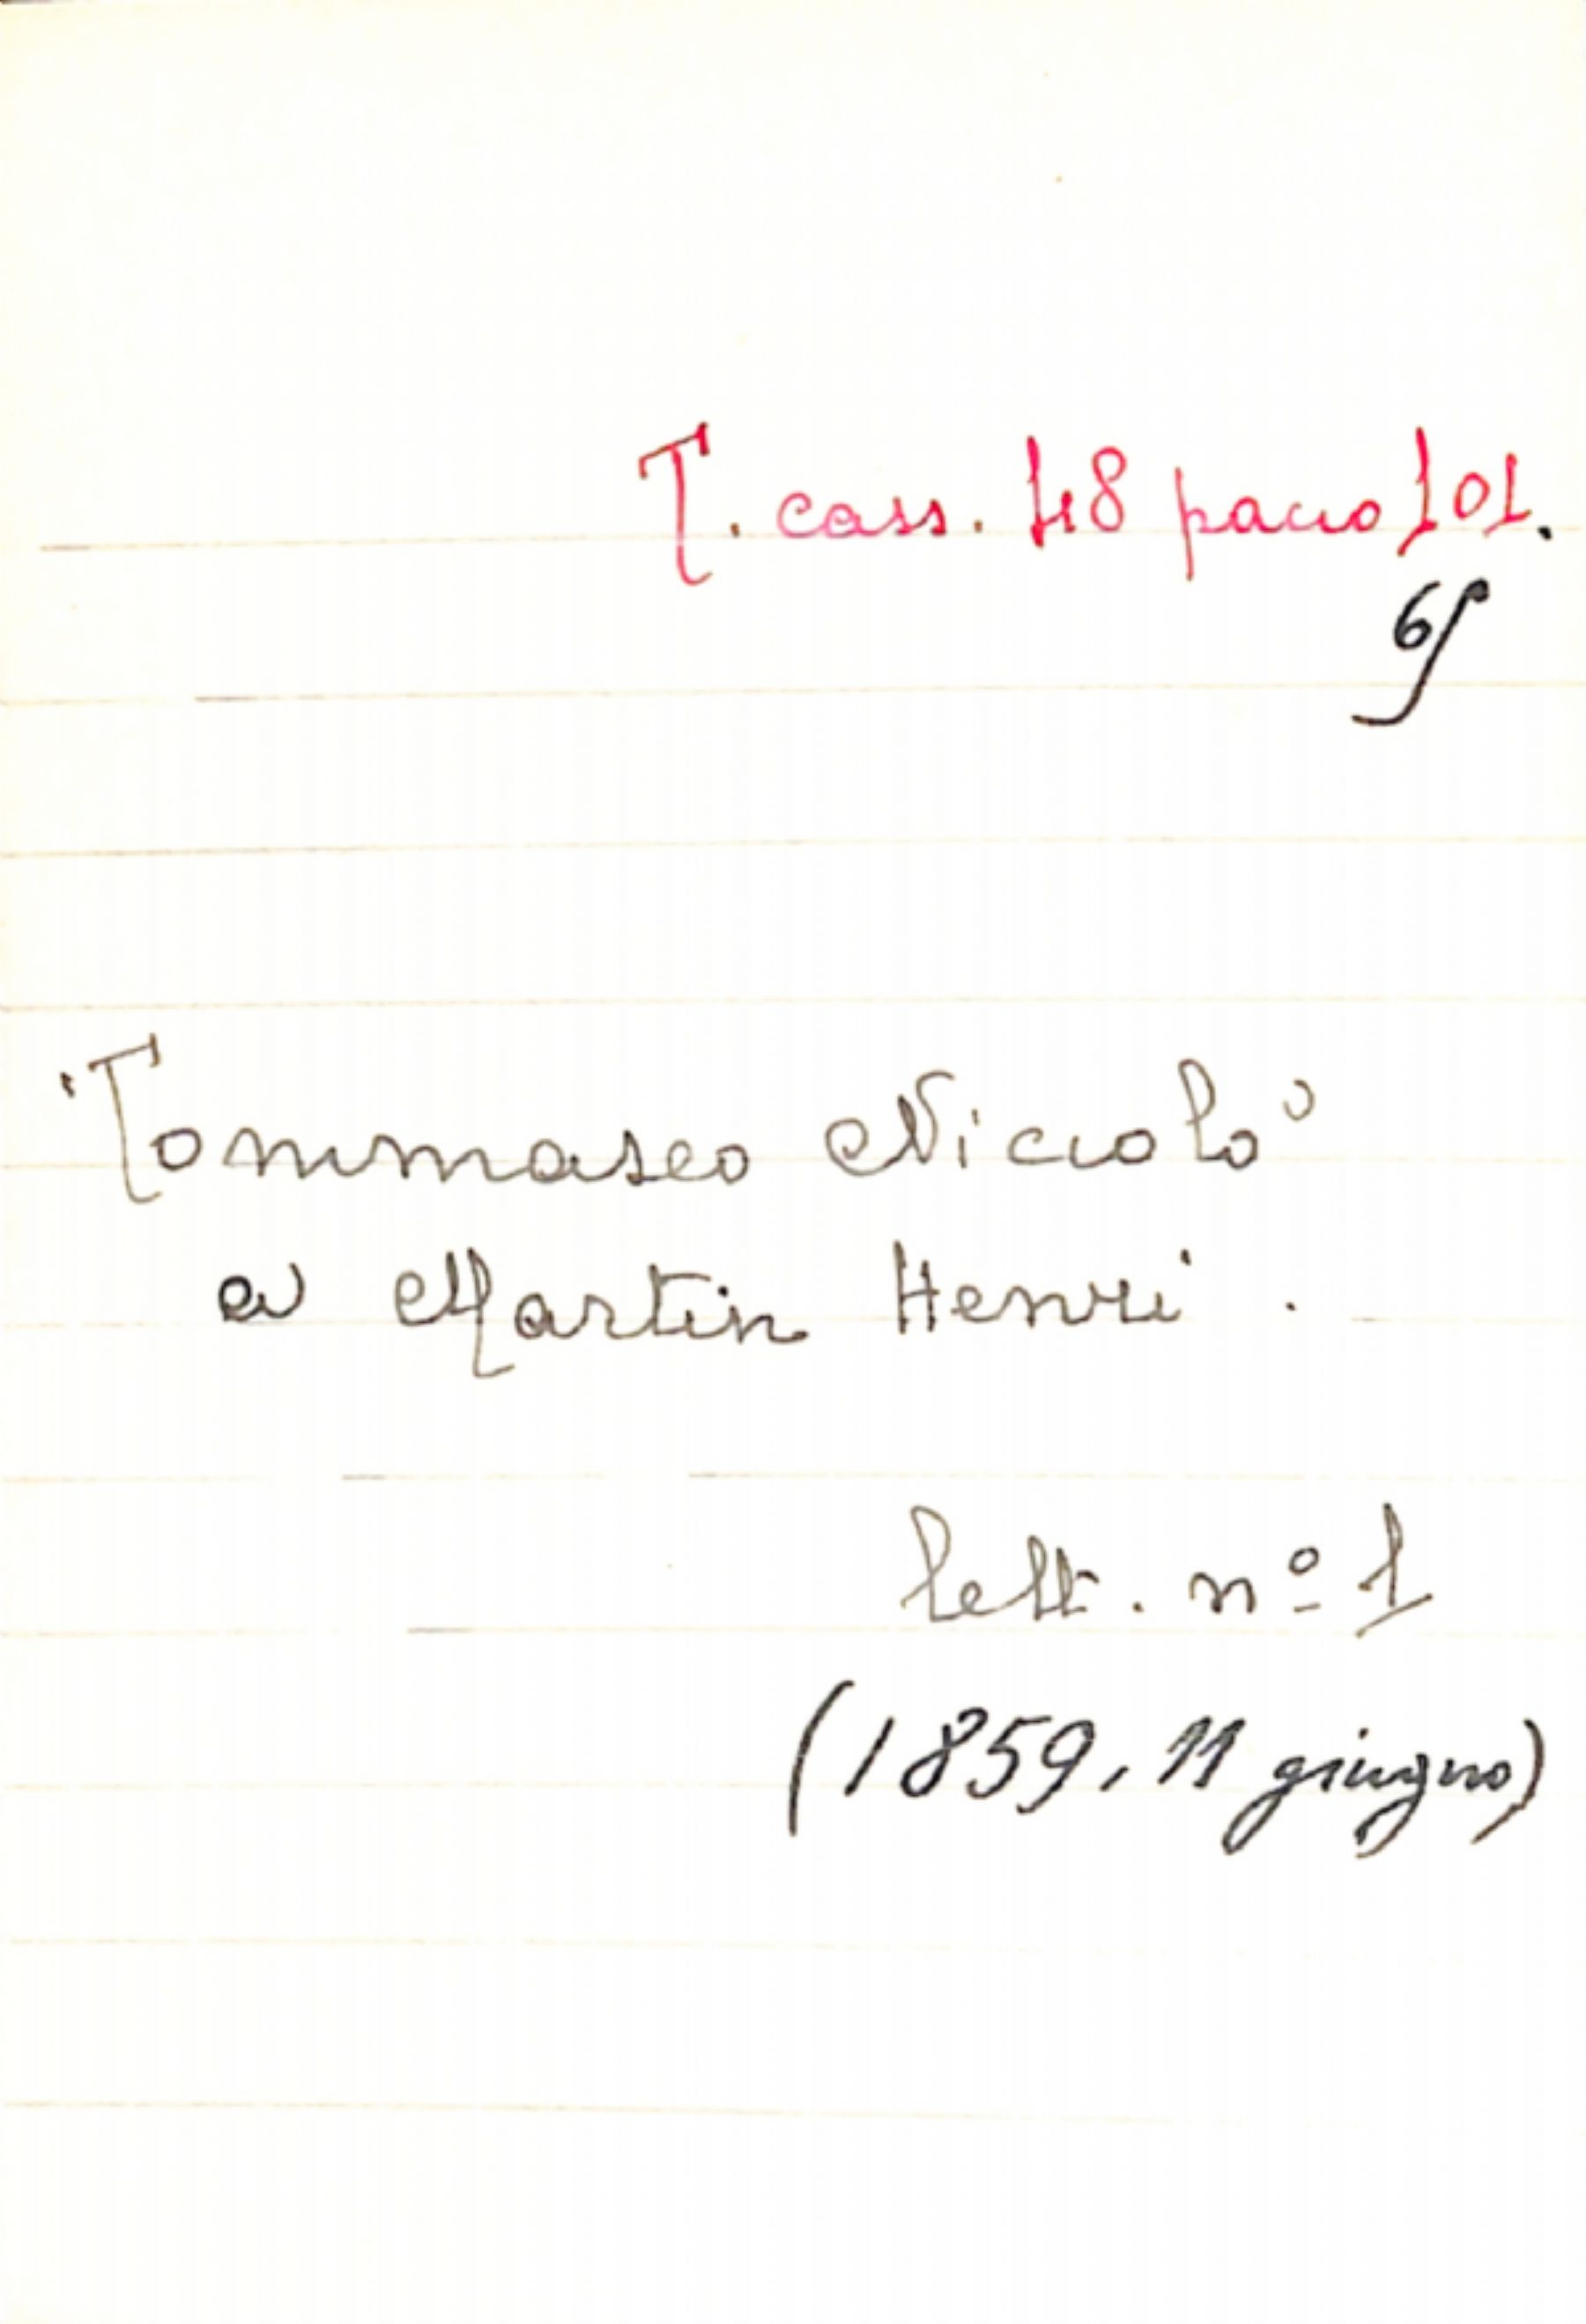 T. cass. 48 pacco 101.
6
Tommaseo Niccolò
a Martin Henri.
lett. nº 1
(1859, 11 giugno)